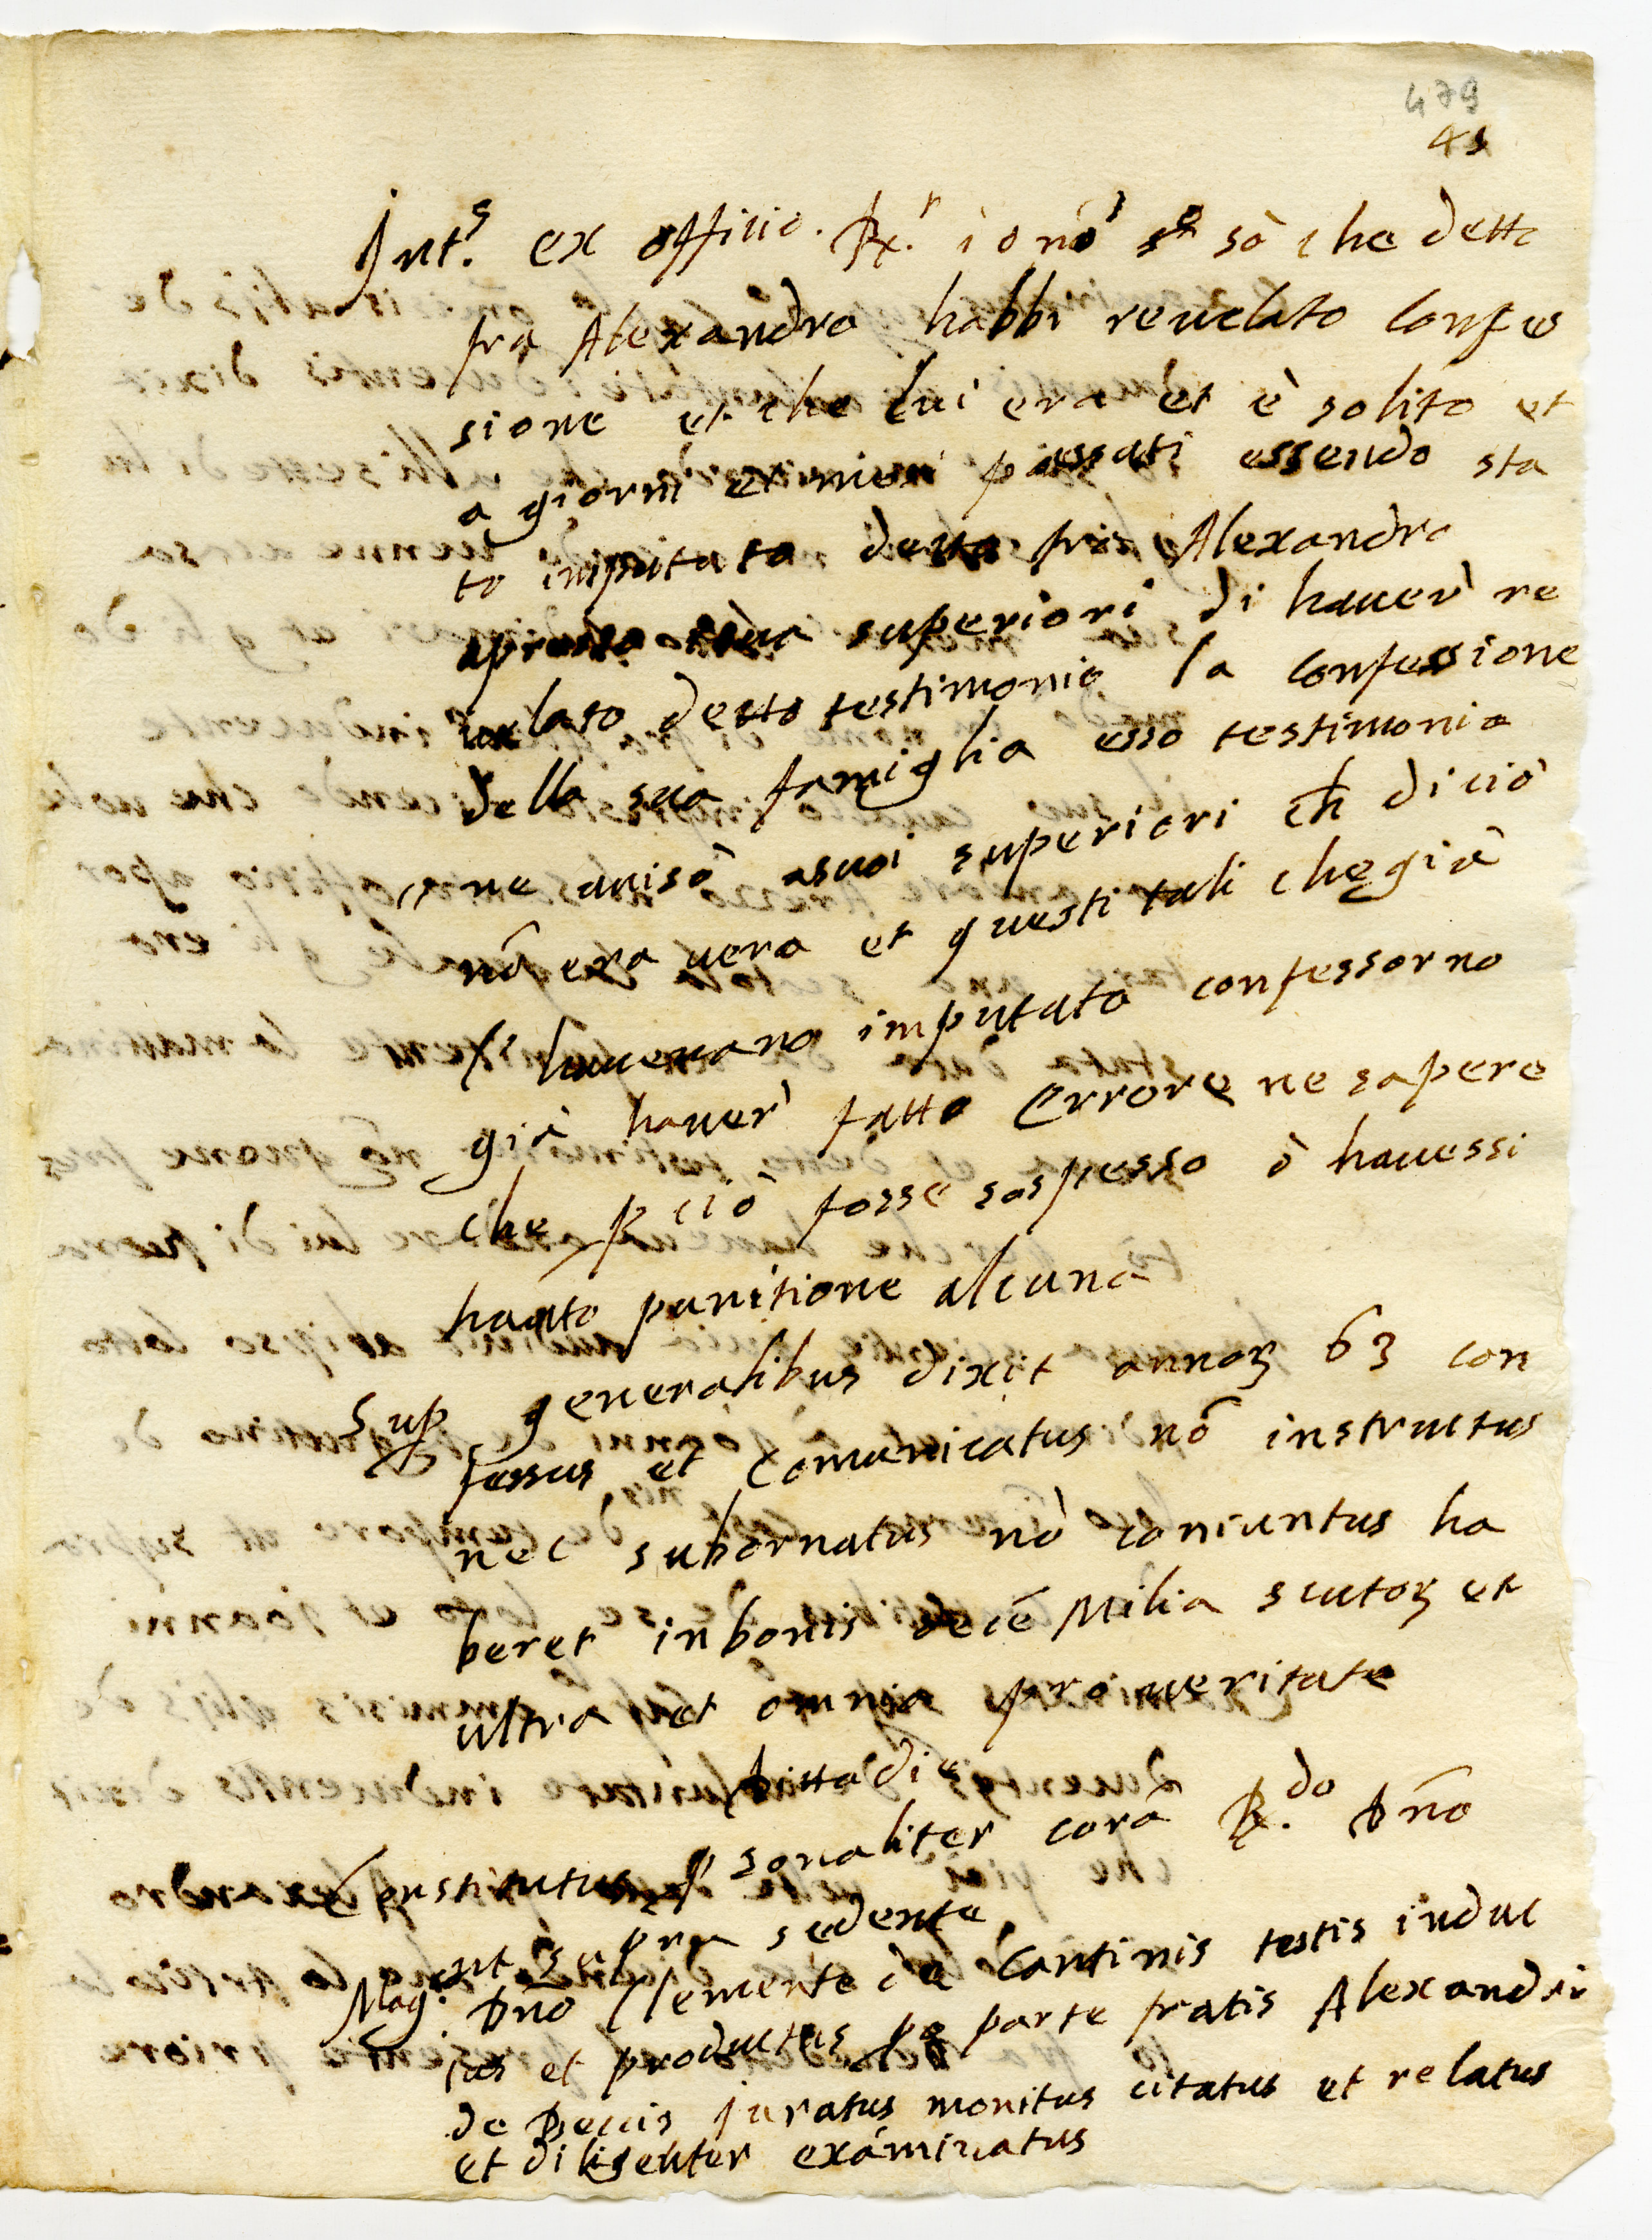 479
45
Int.s ex offitio. Rx.r io nō so che detto
fra Alexandro habbi reuelato Confes
sione et che lui era et è solito et
a giorni et mesi passati essendo sta
to imputato detto frà Alexandro
apresso superiori di hauer' re
uelato detto testimonio la confessione
della sua famiglia esso testimonio
ne auisò asuoi superiori ch̄ di ciò
nō era vero et questi tali che già
l'haueuano imputato confessorno
già hauer' fatto errore ne sapere
che p ciò fosse sospesso ò hauessi
hauto punitione alcuna
Sup generalibus dixit annoꝝ 63 con
fessus et comunicatus nō instructus
nec subornatus nō coniuntus ha
beret in bonis decē Milia scutoꝝ et
ultra et omnia pro ueritate
ditta die
Constitutus psonaliter corā R.do Dn̄o
ut supra sedente
Mag.s Dn̄o Clemente de Cantinis testis induc
tus et productus p parte fratis Alexandri
de Beccis juratus monitus citatus et relatus
et diligenter exáminatus